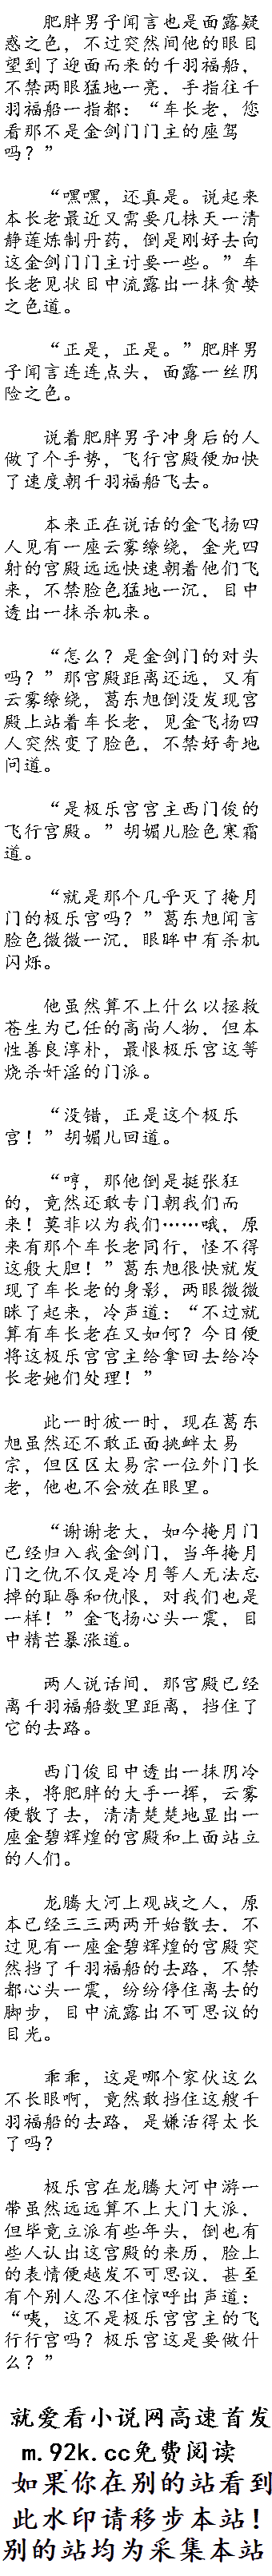 肥胖男子闻言也是面露疑
惑之色，不过突然间他的眼目
望到了迎面而来的千羽福船，
不禁两眼猛地一亮，手指往千
羽福船一指都：“车长老，您
看那不是金剑门门主的座驾
吗？”
“嘿嘿，还真是。说起来
本长老最近又需要几株天一清
静莲炼制丹药，倒是刚好去向
这金剑门门主讨要一些。”车
长老见状目中流露出一抹贪婪
之色道。
“正是，正是。”肥胖男
子闻言连连点头，面露一丝阴
险之色。
说着肥胖男子冲身后的人
做了个手势，飞行宫殿便加快
了速度朝千羽福船飞去。
本来正在说话的金飞扬四
人见有一座云雾缭绕，金光四
射的宫殿远远快速朝着他们飞
来，不禁脸色猛地一沉，目中
透出一抹杀机来。
“怎么？是金剑门的对头
吗？”那宫殿距离还远，又有
云雾缭绕，葛东旭倒没发现宫
殿上站着车长老，见金飞扬四
人突然变了脸色，不禁好奇地
问道。
“是极乐宫宫主西门俊的
飞行宫殿。”胡媚儿脸色寒霜
道。
“就是那个几乎灭了掩月
门的极乐宫吗？”葛东旭闻言
脸色微微一沉，眼眸中有杀机
闪烁。
他虽然算不上什么以拯救
苍生为己任的高尚人物，但本
性善良淳朴，最恨极乐宫这等
烧杀奸淫的门派。
“没错，正是这个极乐
宫！”胡媚儿回道。
“哼，那他倒是挺张狂
的，竟然还敢专门朝我们而
来！莫非以为我们……哦，原
来有那个车长老同行，怪不得
这般大胆！”葛东旭很快就发
现了车长老的身影，两眼微微
眯了起来，冷声道：“不过就
算有车长老在又如何？今日便
将这极乐宫宫主给拿回去给冷
长老她们处理！”
此一时彼一时，现在葛东
旭虽然还不敢正面挑衅太易
宗，但区区太易宗一位外门长
老，他也不会放在眼里。
“谢谢老大，如今掩月门
已经归入我金剑门，当年掩月
门之仇不仅是冷月等人无法忘
掉的耻辱和仇恨，对我们也是
一样！”金飞扬心头一震，目
中精芒暴涨道。
两人说话间，那宫殿已经
离千羽福船数里距离，挡住了
它的去路。
西门俊目中透出一抹阴冷
来，将肥胖的大手一挥，云雾
便散了去，清清楚楚地显出一
座金碧辉煌的宫殿和上面站立
的人们。
龙腾大河上观战之人，原
本已经三三两两开始散去，不
过见有一座金碧辉煌的宫殿突
然挡了千羽福船的去路，不禁
都心头一震，纷纷停住离去的
脚步，目中流露出不可思议的
目光。
乖乖，这是哪个家伙这么
不长眼啊，竟然敢挡住这艘千
羽福船的去路，是嫌活得太长
了吗？
极乐宫在龙腾大河中游一
带虽然远远算不上大门大派，
但毕竟立派有些年头，倒也有
些人认出这宫殿的来历，脸上
的表情便越发不可思议，甚至
有个别人忍不住惊呼出声道：
“咦，这不是极乐宫宫主的飞
行行宫吗？极乐宫这是要做什
么？”
就爱看小说网高速首发
m.92k.cc免费阅读
如果你在别的站看到
此水印请移步本站！
别的站均为采集本站